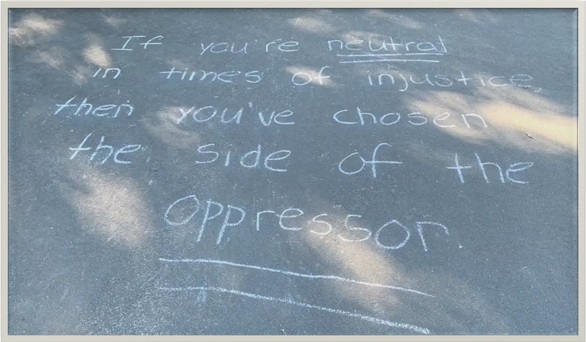 If you're neutral
in times of injustice,
then you've chosen
the side of the
oppressor.